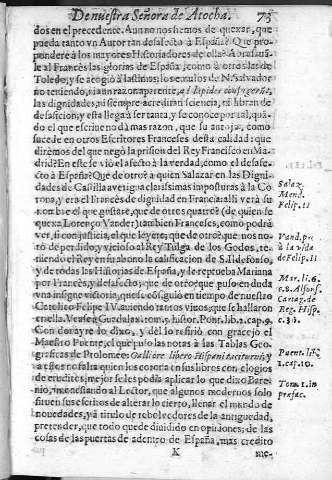 De nuestra Señora de Atocha. 73
dos en el precedente. Aun no nos hemos de quexar, que
pueda tanto vn Autor tan desafecto à España? Que pro-
pondere à los mayores Historiadores de ella?
le al Frances las glorias de España, como à otros las de
Toledo, y se acogiò à lastimos; los emulos de N. Salvador
no teniendo, ni aun razon aparente,
las dignidades, ni siempre acreditan sciencia, ni libran de
desaficion, y esta llega à ser tanta, y se conoce por tal, quã-
do el que escriue no dà mas razon, que su antojo, como
sucede en otros Escritores Franceses desta calidad: que
dirèmos del que negò la prision del Rey Francisco en Ma-
drid? En este se viò el afecto à la verdad, como el desafec-
to à España? Que de otro? à quien Salazar en las Digni-
dades de Castilla averigua clarissimas imposturas à la Co-
rona, y era el Frances de dignidad en Francia: alli verà su
nombre el que gustare, que de otros quatro? (de quien se
quexa Lorenço Vander) tambien Franceses, como podrà
ver, si con justicia, el que leyere, que de otro? que nos no-
tò de perdido, y vicioso al Rey Tulga de los Godos, te-
niendo el Rey en su abono la calificacion de S. Ildefonso,
y de todas las Historias de España, y de reprueba Mariana
por Francès, y desafecto; que de otro? que puso en duda
vna insigne victoria, que se consiguiò en tiempo de nuestro
Catolico Felipe IV. auiendo tantos vivos, que se hallaron
en ella. Vease
Con donayre lo dixo, y dèl lo refiriò con gracejo el
Maestro Puente, el que puso las notas à las Tablas Geo-
graficas de Ptolomeo: Gallicè libero Hispani taciturni; y
à este: no falta quien los corona en sus libros con elogios
de eruditos; mejor se les podia aplicar lo que dixo Baro-
nio, amonestando al Lector, que algunos modernos solo
tienen sus escritos de alterar lo cierto, llenar el mundo de
novedades, y à titulo de rebolcedores de la antiguedad,
pretender, que todo quede dividido en opiniones; de las
cosas de las puertas de adentro de España, mas credito
K me-
Salaz.
Mend.
Felip. II
Vand. pr.
à la vida
de Felip. II
Mar. li. 6.
c. 8. Alfons.
Cartag. de
Reg. Hisp.
c. 31.
Puent. lib.
1. cap. 10.
Tom. 1. in
præfac.